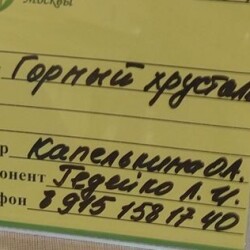 Москвы
Горный хрустал
р Капелькина О.А.
понент Гедейко Л.И.
фон 8 945 158 17 40